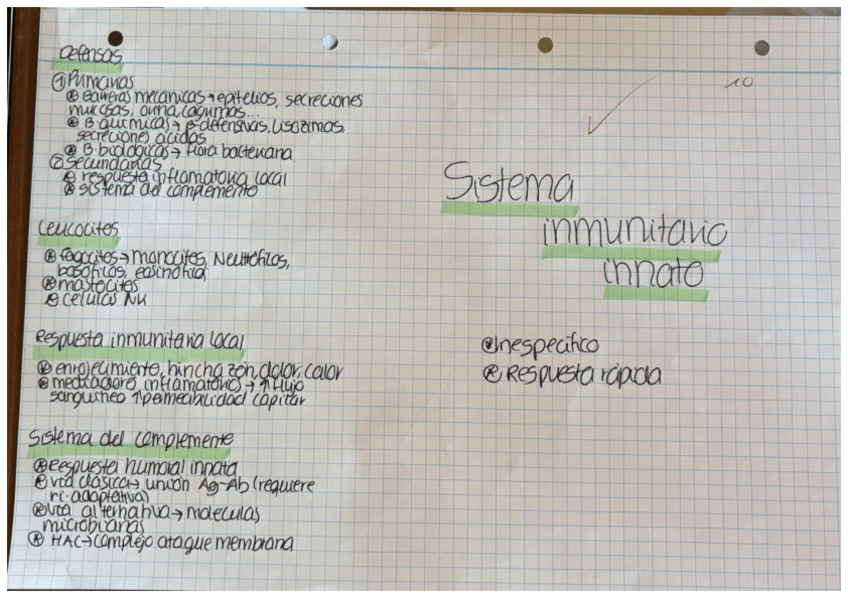 Defensas
① Primarias
⊛ Barreras mecánicas → epitelios, secreciones
mucosas, orina, lagrimas...
⊛ B. químicas → β-defensivas, Lisozimas,
secreciones ácidas
⊛ B. biológicas → flora bacteriana
② Secundarias
⊛ respuesta inflamatoria local
⊛ sistema del complemento
Leucocitos
⊛ fagocitos → monocitos, Neutrófilos,
basófilos, eosinófilos
⊛ mastocitos
⊛ células NK
Respuesta inmunitaria local
⊛ enrojecimiento, hinchazón, dolor, calor
⊛ mediadores inflamatorios → ↑ flujo
sanguíneo ↑ permeabilidad capilar
Sistema del complemente
⊛ Respuesta humoral innata
⊛ vía clásica → unión Ag-Ab (requiere
ri. adaptativa)
⊛ Vía alternativa → moleculas
microbianas
⊛ HAC → complejo ataque membrana
10
Sistema
inmunitario
innato
⊛ Inespecífico
⊛ Respuesta rápida